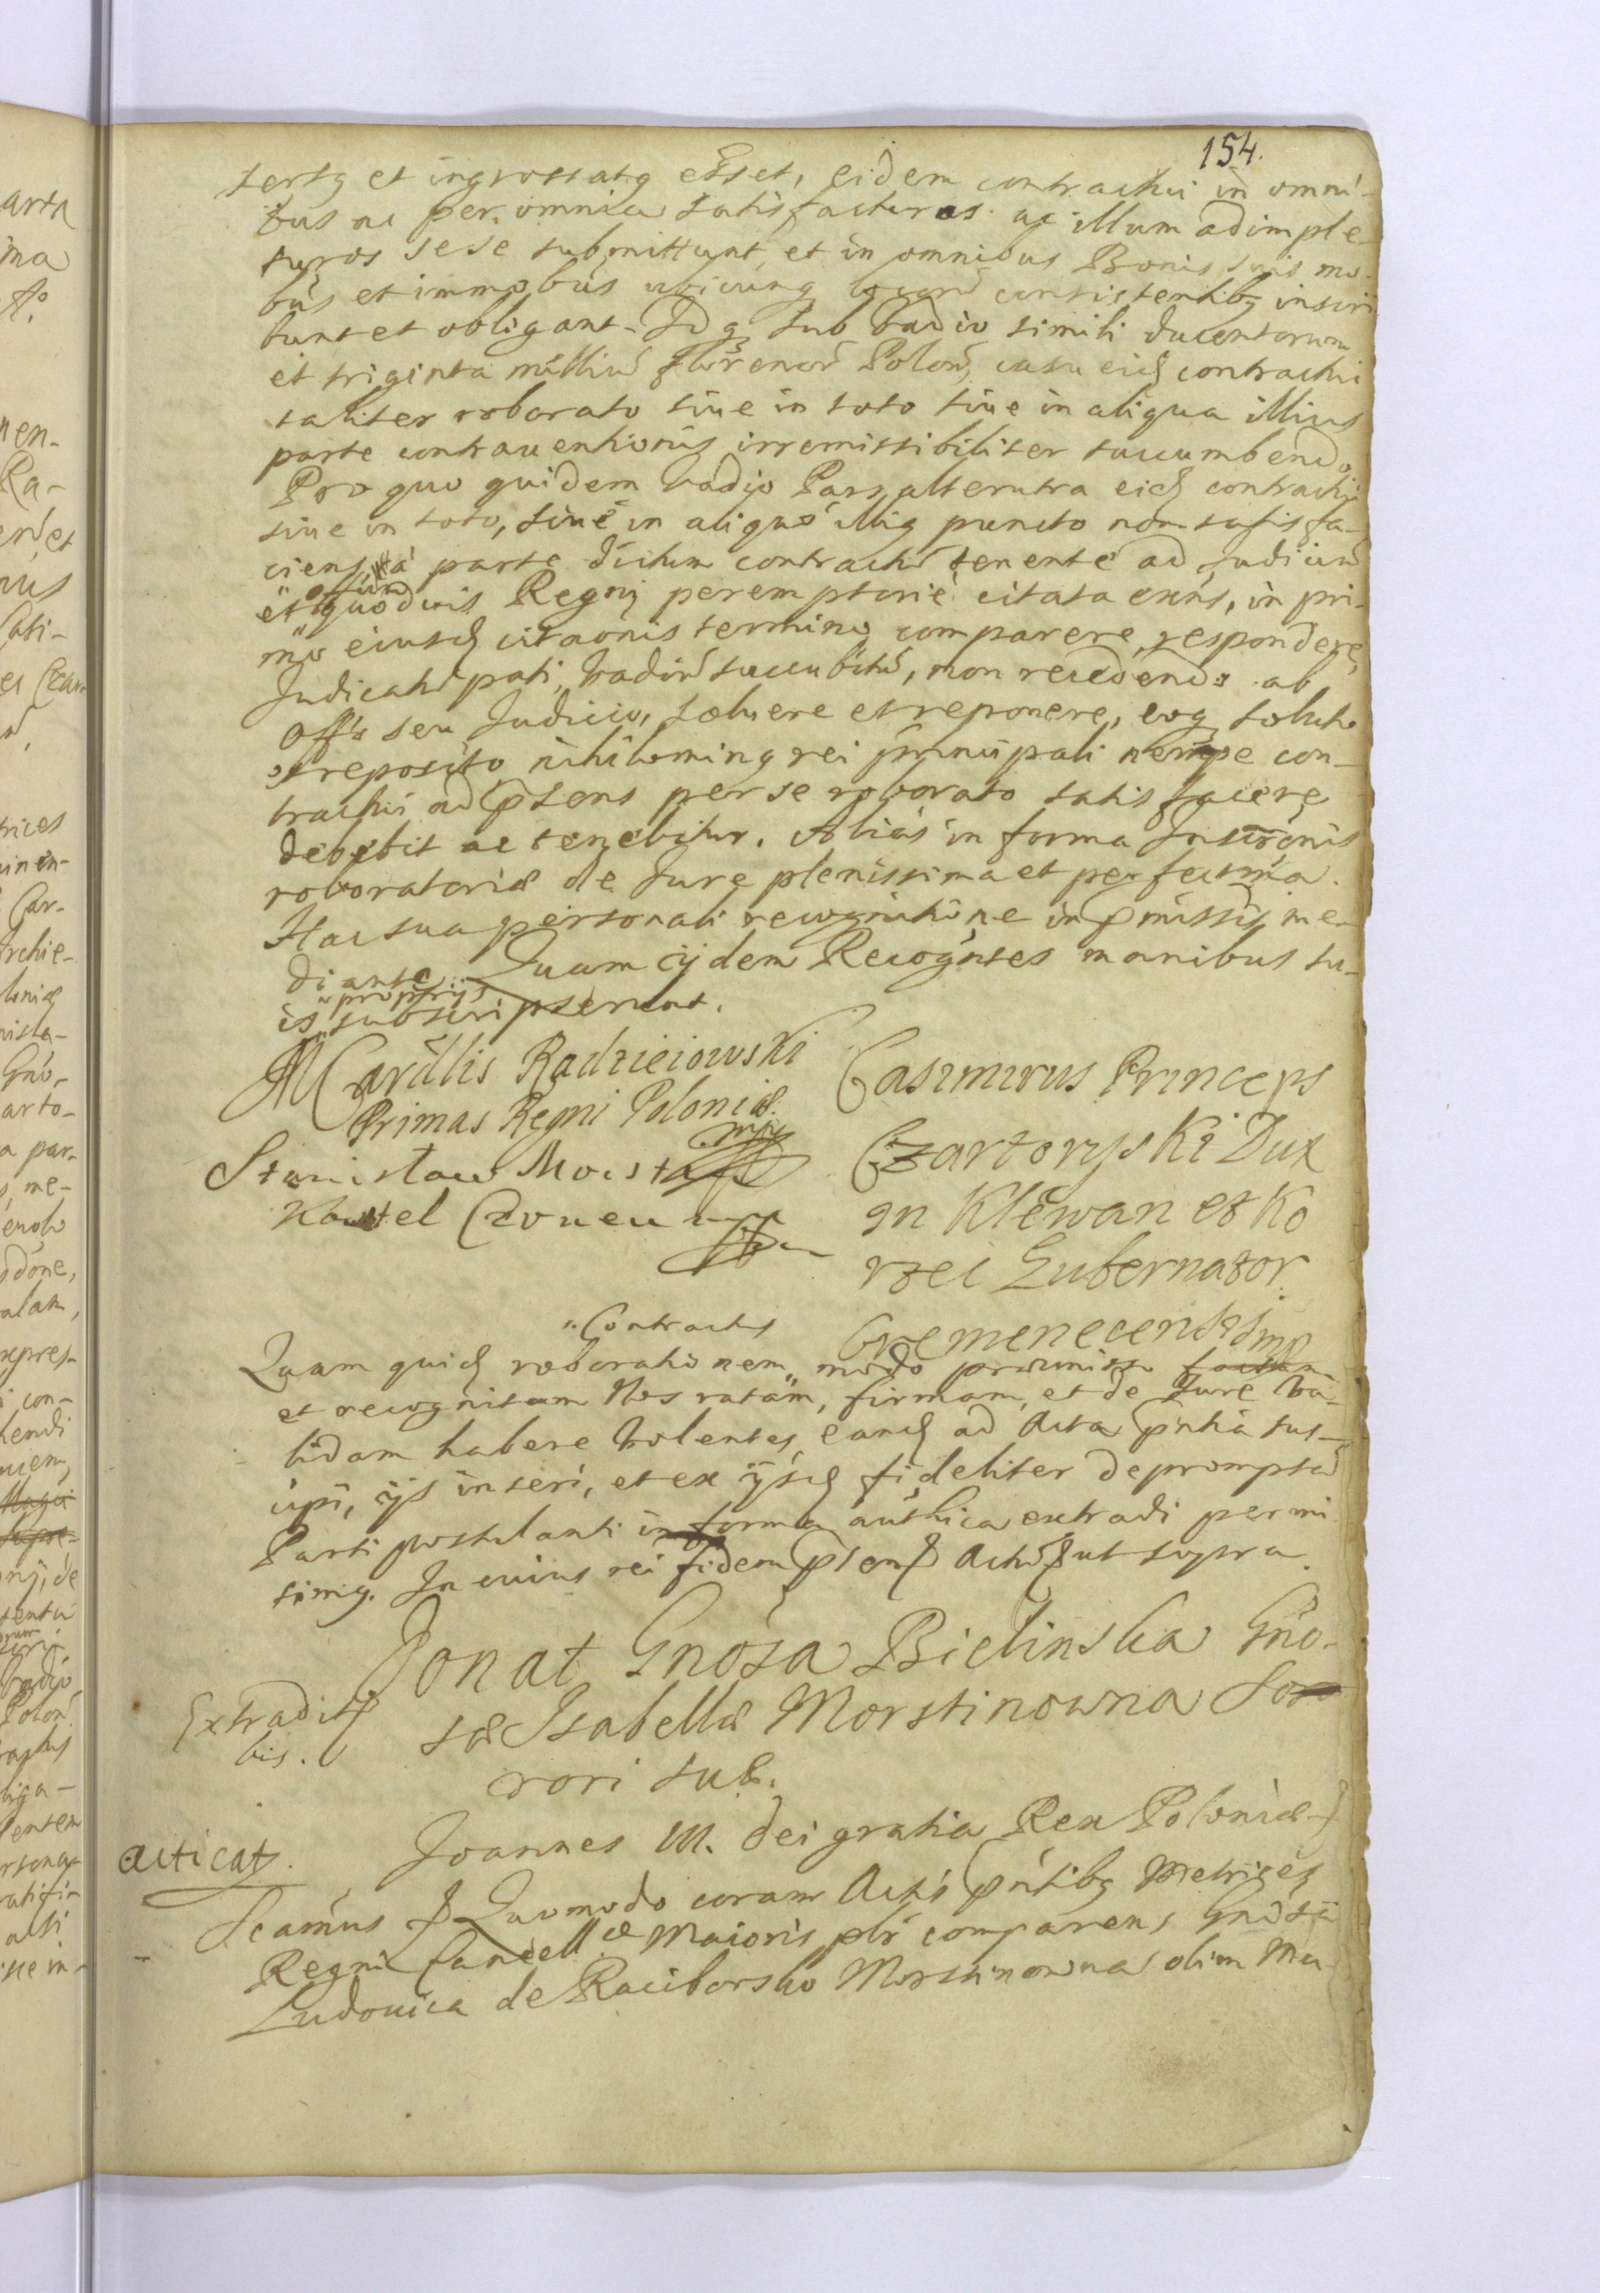 154.
sertq et ingrossatq esset, eidem contractui in omni-
bus ac per omnia satisfacturos ac illum adimple-
turos sese submittunt, et in omnibus Bonis suis mo-
bus et immobus ubicunq locorũ consistentibq inscri
bunt et obligant. Idq sub vadio simili ducentorum
et triginta milliũ florenorũ Polon, casu eid contractui
taliter roborato siue in toto siue in aliqua illius
parte contrauentionis irremissibiliter succumbendo
Pro quo quidem vadio Pars alterutra eid contractui
siue in toto, siue in aliquo illiq puncto non satisfa-
ciens, à parte dictum contractũ tenente ad Judiciũ
et offium quoduis Regni peremptorie citata exns, in pri-
mo eiusd citaõnis termino comparere, respondere,
Judicatũ pati, vadiũ succubitũ, non recedendo ab
Off'o seu Judicio, soluere et reponere, eoq soluto
et reposito nihilominq rei principali nempe con-
tractui ad p̃sens per se roborato satisfacere
debebit ac tenebitur. Alias in forma Inscrõnis
roboratoriæ de Jure plenissima et perfectma.
Hac sua personali recognitione in p̃missis me-
diante. Quam ijdem Recogntes manibus su-
is proprijs subscripserunt.
M Cardlis Radzieiowski
Primas Regni Poloniæ
mpp
Stanisław Morsta
Kasztel Czoneu mpp
Casimirus Princeps
Czartoryski Dux
in Klewan et Ko
rzec Gubernator
Cremenecensis mp
Quam quid roborationem Contractus modo præmisso factam
et recognitam Nos ratam, firmam, et de Jure va-
lidam habere volentes, eand ad Acta pñtia sus-
cipi, ijs inseri, et ex ijsd fideliter depromptã
Parti postulanti in forma authica extradi permi
simq. In cuius rei fidem p̃sen Actũ ut supra
Donat Gnosa Bielinska Gno-
sæ Isabellæ Morstinowna Soro
rori suæ.
Extradit
bis.
Joannes III. Dei gratia Rex Poloniæ
acticatq.
Scamus Quomodo coram Actis pñtibq Metrices
Regni Cancellæ Maioris plr comparens Gnosa
Ludouica de Raciborsko Morstinowna olim Ma-